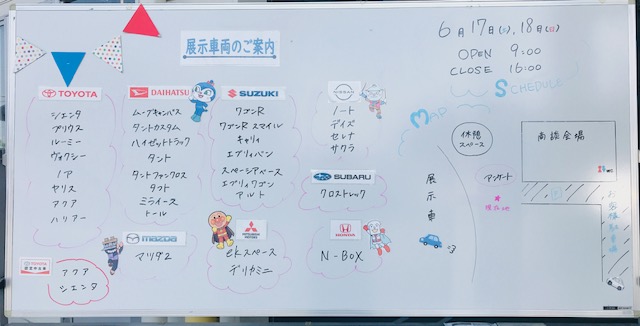 展示車両のご案内
6月17日(土),18日(日)
OPEN 9:00
CLOSE 16:00
SCHEDULE
MAP
TOYOTA
シエンタ
プリウス
ルーミー
ヴォクシー
ノア
ヤリス
アクア
ハリアー
DAIHATSU
ムーブキャンバス
タントカスタム
ハイゼットトラック
タント
タントファンクロス
タフト
ミライース
トール
SUZUKI
ワゴンR
ワゴンR スマイル
キャリィ
エブリィバン
スペーシアベース
エブリィワゴン
アルト
NISSAN
ノート
デイズ
セレナ
サクラ
SUBARU
クロストレック
mazda
マツダ2
MITSUBISHI MOTORS
ekスペース
デリカミニ
HONDA
N-BOX
TOYOTA
アクア
シエンタ
休憩
スペース
商談会場
アンケート
展示車
お客様駐車場